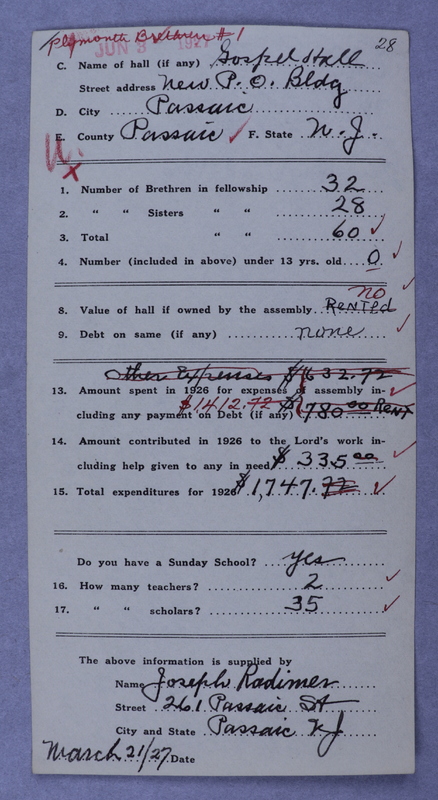 Plymouth Brethren #1
JUN 3 1927
28
C. Name of hall (if any) Gospel Hall
Street address New P.O. Bldg
D. City Passaic
E. County Passaic F. State N.J.
1. Number of Brethren in fellowship 32
2. " " Sisters " " 28
3. Total " " 60
4. Number (included in above) under 13 yrs. old 0
no
8. Value of hall if owned by the assembly Rented
9. Debt on same (if any) none
Other Expenses $632.72
13. Amount spent in 1926 for expenses of assembly in-
$1412.72
cluding any payment on Debt (if any) $780.00 Rent
14. Amount contributed in 1926 to the Lord's work in-
cluding help given to any in need $ 335.00
15. Total expenditures for 1926 $1,747.72
Do you have a Sunday School? yes
16. How many teachers? 2
17. " " scholars? 35
The above information is supplied by
Name Joseph Radimer
Street 261 Passaic St
City and State Passaic NJ
March 21/27 Date